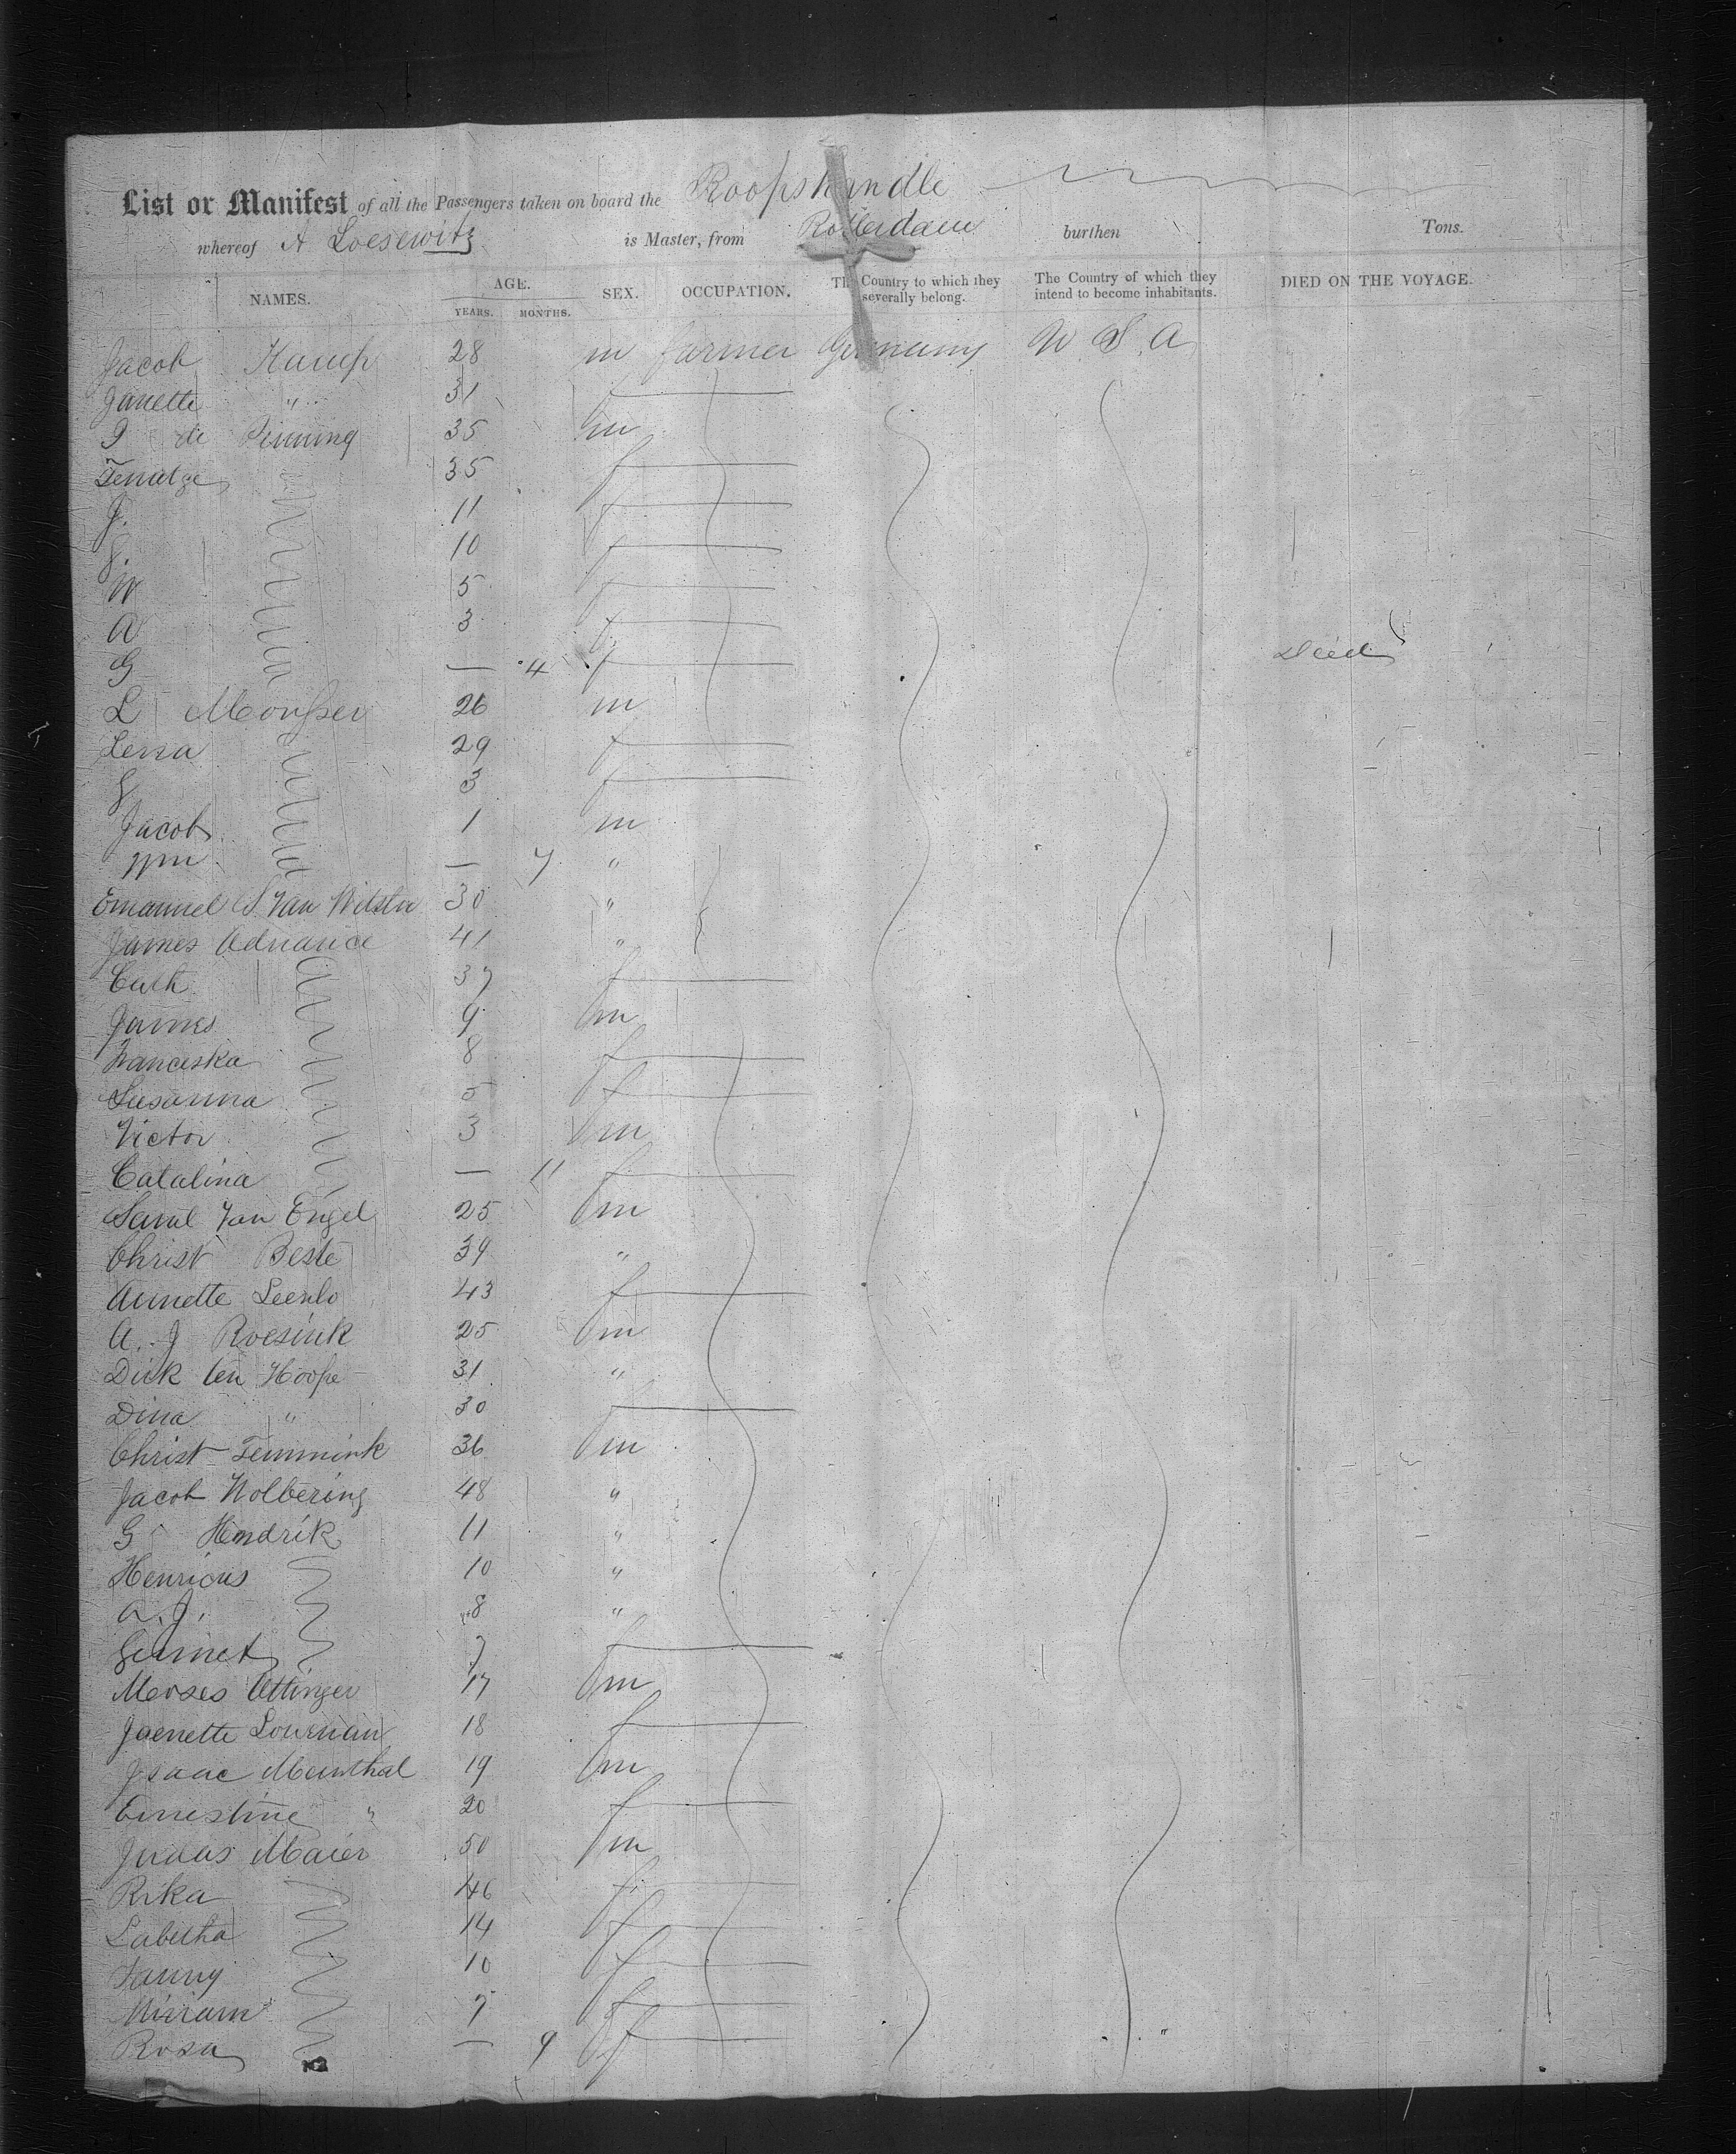 List or Manifest of all the Passengers taken on board the Koophandle
whereof A Loesewitz is Master, from Rotterdam burthen Tons.
NAMES. AGE. YEARS. MONTHS. SEX. OCCUPATION. The Country to which they severally belong. The Country of which they intend to become inhabitants. DIED ON THE VOYAGE.
Jacob Kamp 28 m farmer Germany U S A
Janette " 31 f
J de 35 m
35 f
J. 11 f
J. 10 f
W 5 f
A 3 f
G — 4 f Died
L 26 m
Lena 29 f
J 3 f
Jacob 1 m
Wm — 7 "
Emanuel S Van 30 "
James Adriance 41 "
Cath 37 f
James 9 m
Franceska 8 f
Susanna 5 f
Victor 3 m
Catalina — 11 f
Van Engel 25 m
Christ Beste 39 "
Annette Leenlo 43 f
A. J Roesink 25 m
Dirk ten Hoope 31 "
Dina " 30 f
Christ Temmink 36 m
Jacob Wolbering 48 "
G Hendrik 11 "
Henricus 10 "
A. J. 8 "
7 f
Moses Ottinger 17 m
Jaenette Lournan 18 f
Isaac 19 m
Ernestine " 20 f
Judas Maier 50 m
Rika 46 f
Labetha 14 f
Fanny 10 f
Miriam 7 f
Rosa — 9 f